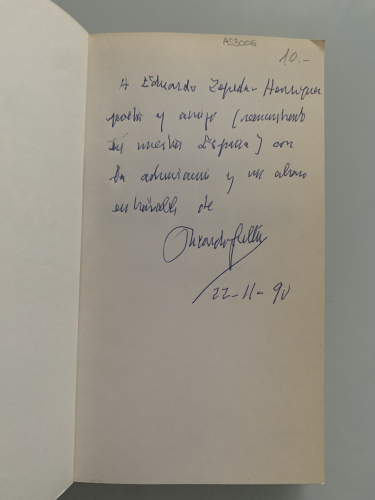 AS3006
10.-
A Eduardo Zepeda-Henríquez
poeta y amigo (reencontrado
en nuestra España) con
la admiración y un abrazo
entrañable de
22-11-90